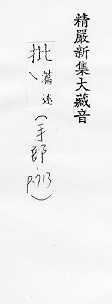 精嚴新集大藏音
批 舊述(手部 p.713)